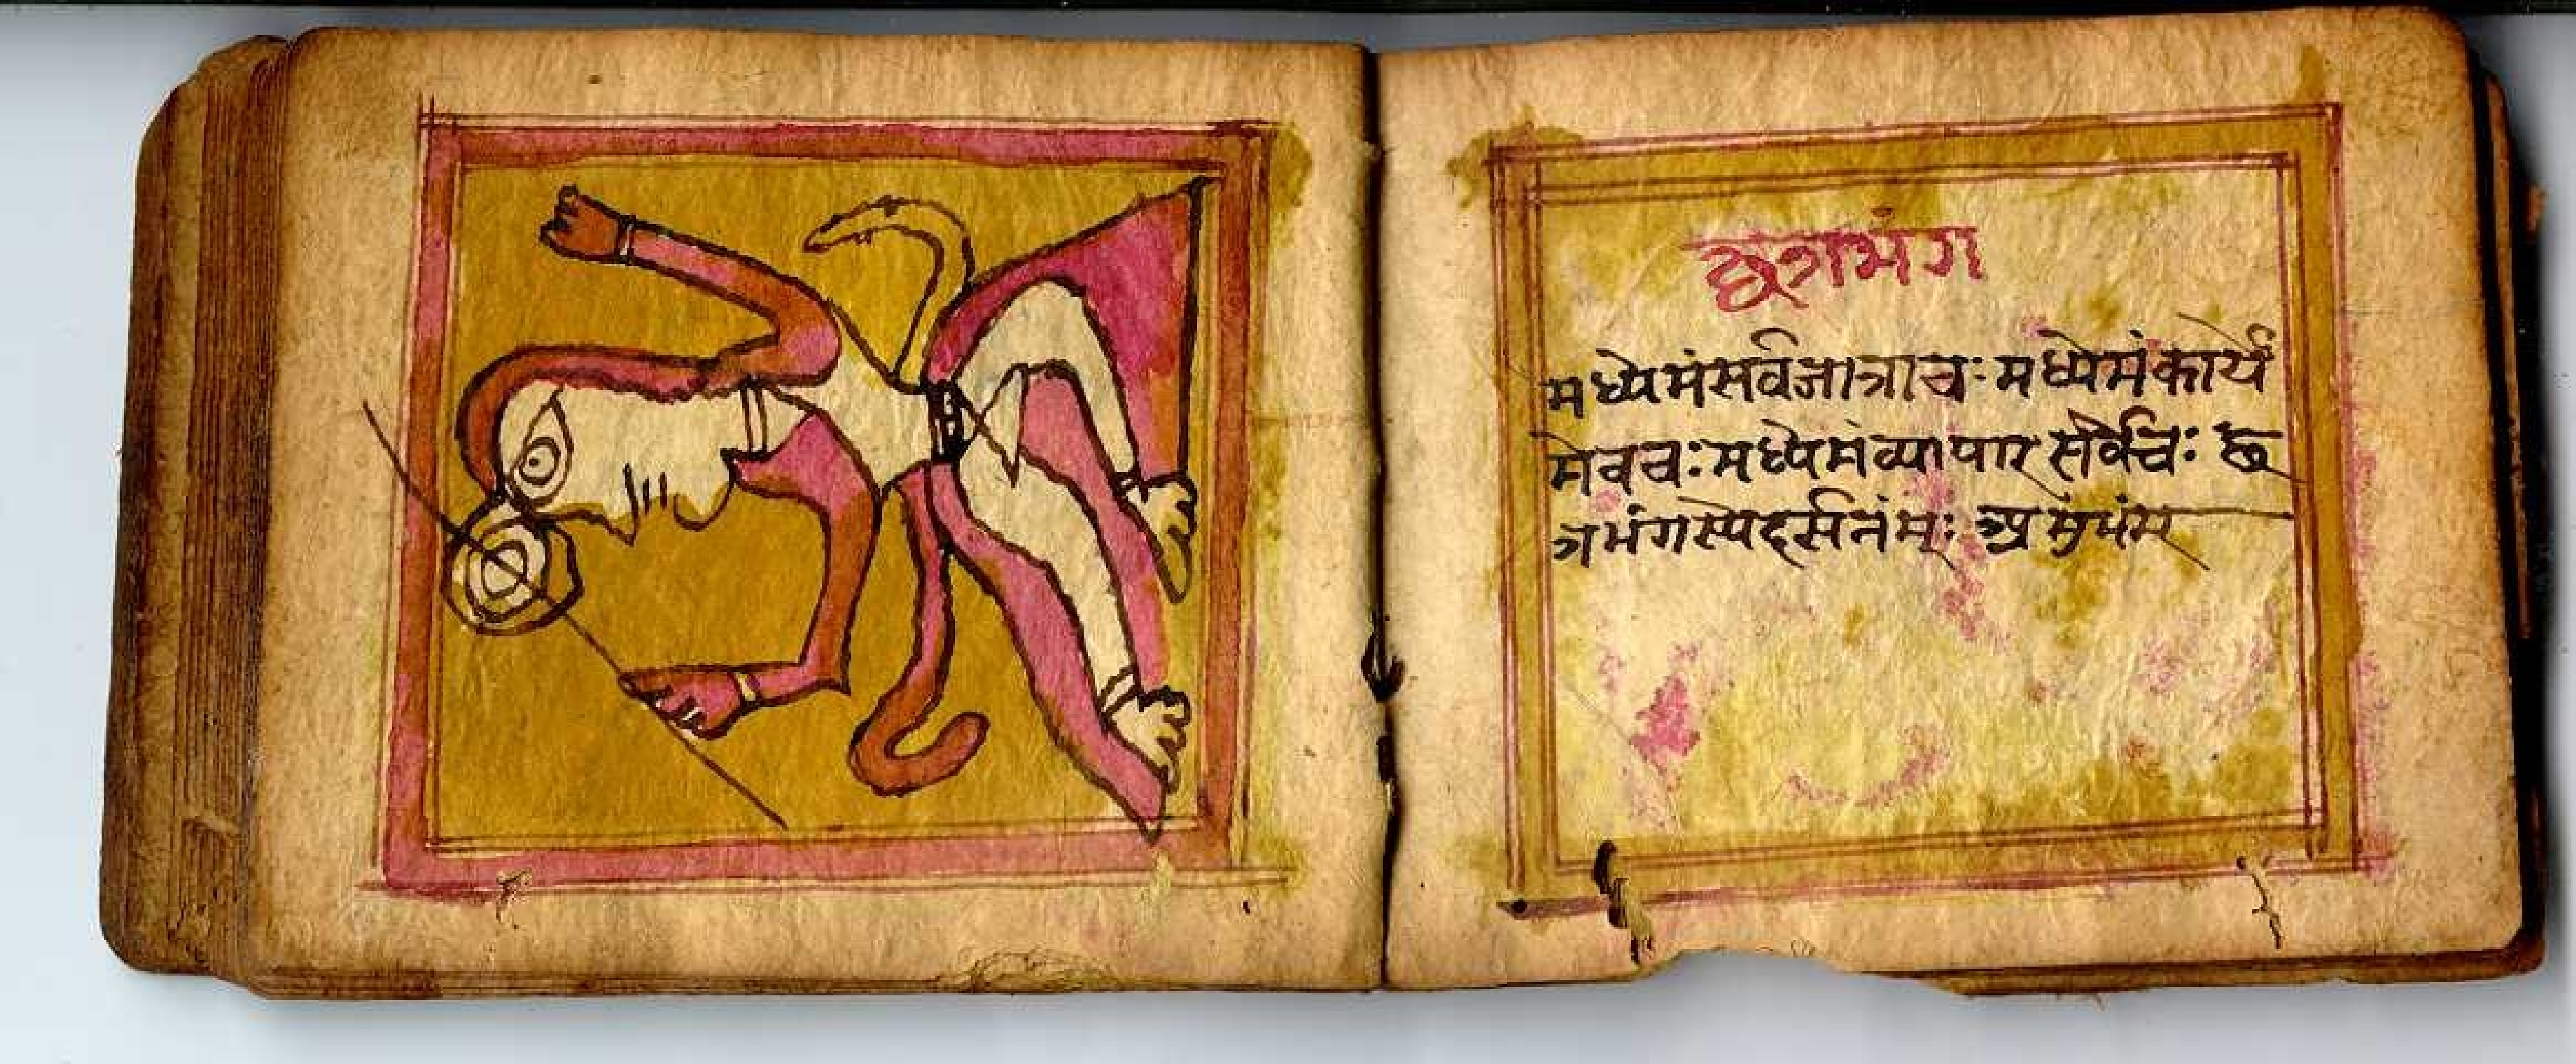 छत्रभंग
मध्येमंसर्वजात्राचः मध्येमंकार्य
मेवचः मध्येमंव्यापारसर्वेचः छ
त्रभंगस्यदर्सनंम्ः